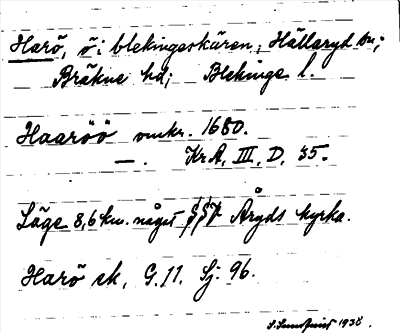 Harö, ö i blekingeskären, Hällaryd sn;
Bräkne hd; Blekinge l.
Haaröö omkr. 1680.
—. Kr.A, III, D, 35.
Läge 8,6 km. något Åryds kyrka.
Harö sk, G. 11. Sj. 96.
S. Sundqvist 1938.